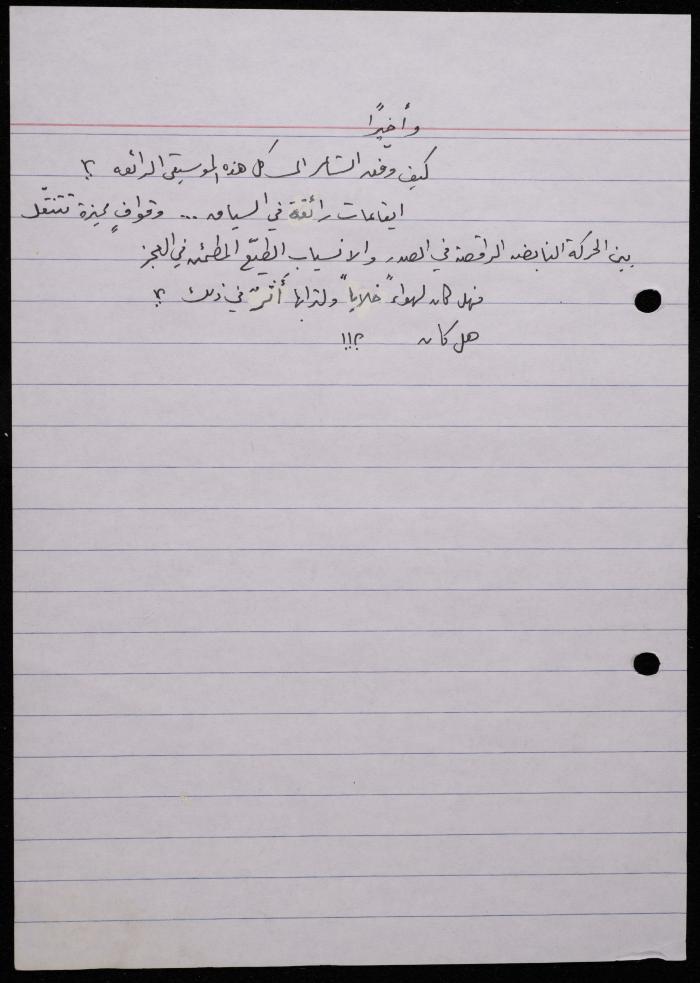 وأخيرًا
كيف وفّق الشاعر الى كل هذه الموسيقى الرائعه ؟
ايقاعات رائقة في السياق ... وقوافٍ مميزة تتنقّل
بين الحركة النابضه الراقصة في الصدر والانسياب الطيّع المطمئن في العجز
فهل كان لهواء "خلايا" ولترابها أثرٌ في ذلك ؟
هل كان ؟!!